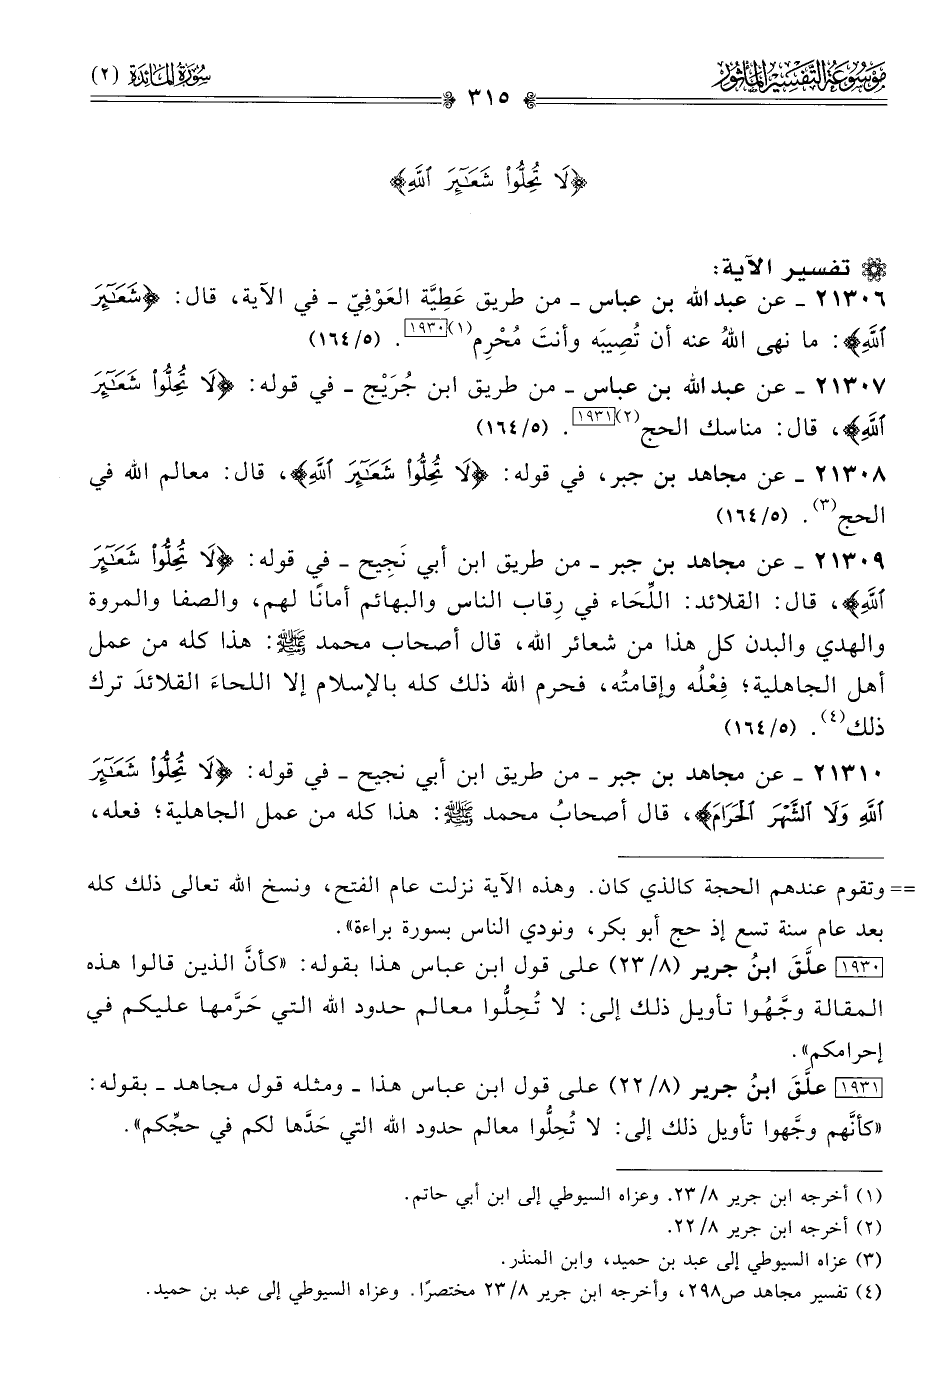 موسوعة التفسير المأثور
سورة المائدة (٢)
٣١٥
﴿لَا تُحِلُّوا۟ شَعَـٰٓئِرَ ٱللَّهِ﴾
تفسير الآية:
٢١٣٠٦ ـ عن عبد الله بن عباس ـ من طريق عَطِيَّة العَوْفِيّ ـ في الآية، قال: ﴿شَعَـٰٓئِرَ
ٱللَّهِ﴾: ما نهى اللهُ عنه أن تُصِيبَه وأنتَ مُحْرِم(١)[١٩٣٠]. (١٦٤/٥)
٢١٣٠٧ ـ عن عبد الله بن عباس ـ من طريق ابن جُرَيْج ـ في قوله: ﴿لَا تُحِلُّوا۟ شَعَـٰٓئِرَ
ٱللَّهِ﴾، قال: مناسك الحج(٢)[١٩٣١]. (١٦٤/٥)
٢١٣٠٨ ـ عن مجاهد بن جبر، في قوله: ﴿لَا تُحِلُّوا۟ شَعَـٰٓئِرَ ٱللَّهِ﴾، قال: معالم الله في
الحج(٣). (١٦٤/٥)
٢١٣٠٩ ـ عن مجاهد بن جبر ـ من طريق ابن أبي نَجِيح ـ في قوله: ﴿لَا تُحِلُّوا۟ شَعَـٰٓئِرَ
ٱللَّهِ﴾، قال: القلائد: اللِّحَاء في رِقاب الناس والبهائم أمانًا لهم، والصفا والمروة
والهدي والبدن كل هذا من شعائر الله، قال أصحاب محمد ﷺ: هذا كله من عمل
أهل الجاهلية؛ فِعْلُه وإقامتُه، فحرم الله ذلك كله بالإسلام إلا اللحاءَ القلائدَ ترك
ذلك(٤). (١٦٤/٥)
٢١٣١٠ ـ عن مجاهد بن جبر ـ من طريق ابن أبي نجيح ـ في قوله: ﴿لَا تُحِلُّوا۟ شَعَـٰٓئِرَ
ٱللَّهِ وَلَا ٱلشَّهْرَ ٱلْحَرَامَ﴾، قال أصحابُ محمد ﷺ: هذا كله من عمل الجاهلية؛ فعله،
== وتقوم عندهم الحجة كالذي كان. وهذه الآية نزلت عام الفتح، ونسخ الله تعالى ذلك كله
بعد عام سنة تسع إذ حج أبو بكر، ونودي الناس بسورة براءة».
[١٩٣٠] علَّقَ ابنُ جرير (٢٣/٨) على قول ابن عباس هذا بقوله: «كأنَّ الذين قالوا هذه
المقالة وجَّهُوا تأويل ذلك إلى: لا تُحِلُّوا معالم حدود الله التي حَرَّمها عليكم في
إحرامكم».
[١٩٣١] علَّقَ ابنُ جرير (٢٢/٨) على قول ابن عباس هذا ـ ومثله قول مجاهد ـ بقوله:
«كأنَّهم وجَّهوا تأويل ذلك إلى: لا تُحِلُّوا معالم حدود الله التي حَدَّها لكم في حجِّكم».
(١) أخرجه ابن جرير ٢٣/٨. وعزاه السيوطي إلى ابن أبي حاتم.
(٢) أخرجه ابن جرير ٢٢/٨.
(٣) عزاه السيوطي إلى عبد بن حميد، وابن المنذر.
(٤) تفسير مجاهد ص٢٩٨، وأخرجه ابن جرير ٢٣/٨ مختصرًا. وعزاه السيوطي إلى عبد بن حميد.